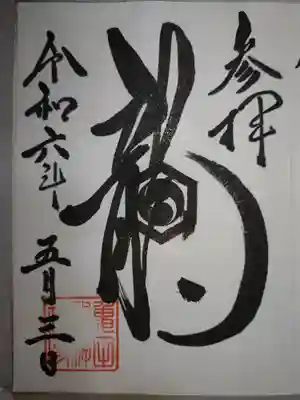 参拝
龍
令和六年
五月三日